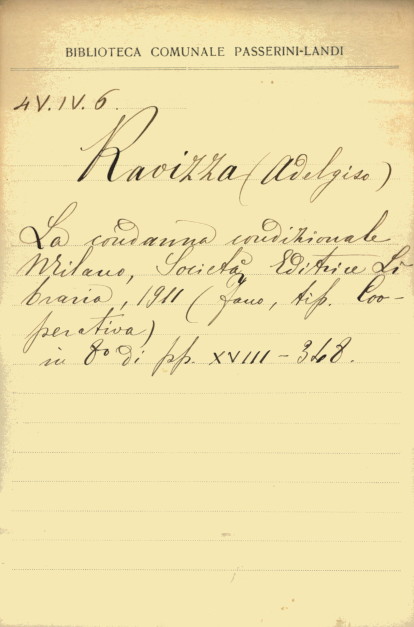 BIBLIOTECA COMUNALE PASSERINI-LANDI
4V.IV.6.
Ravizza (Adelgiso)
La condanna condizionale
Milano, Società Editrice Li-
braria, 1911 (Fano, tip. Coo-
perativa)
in 8º di pp. XVIII-348.